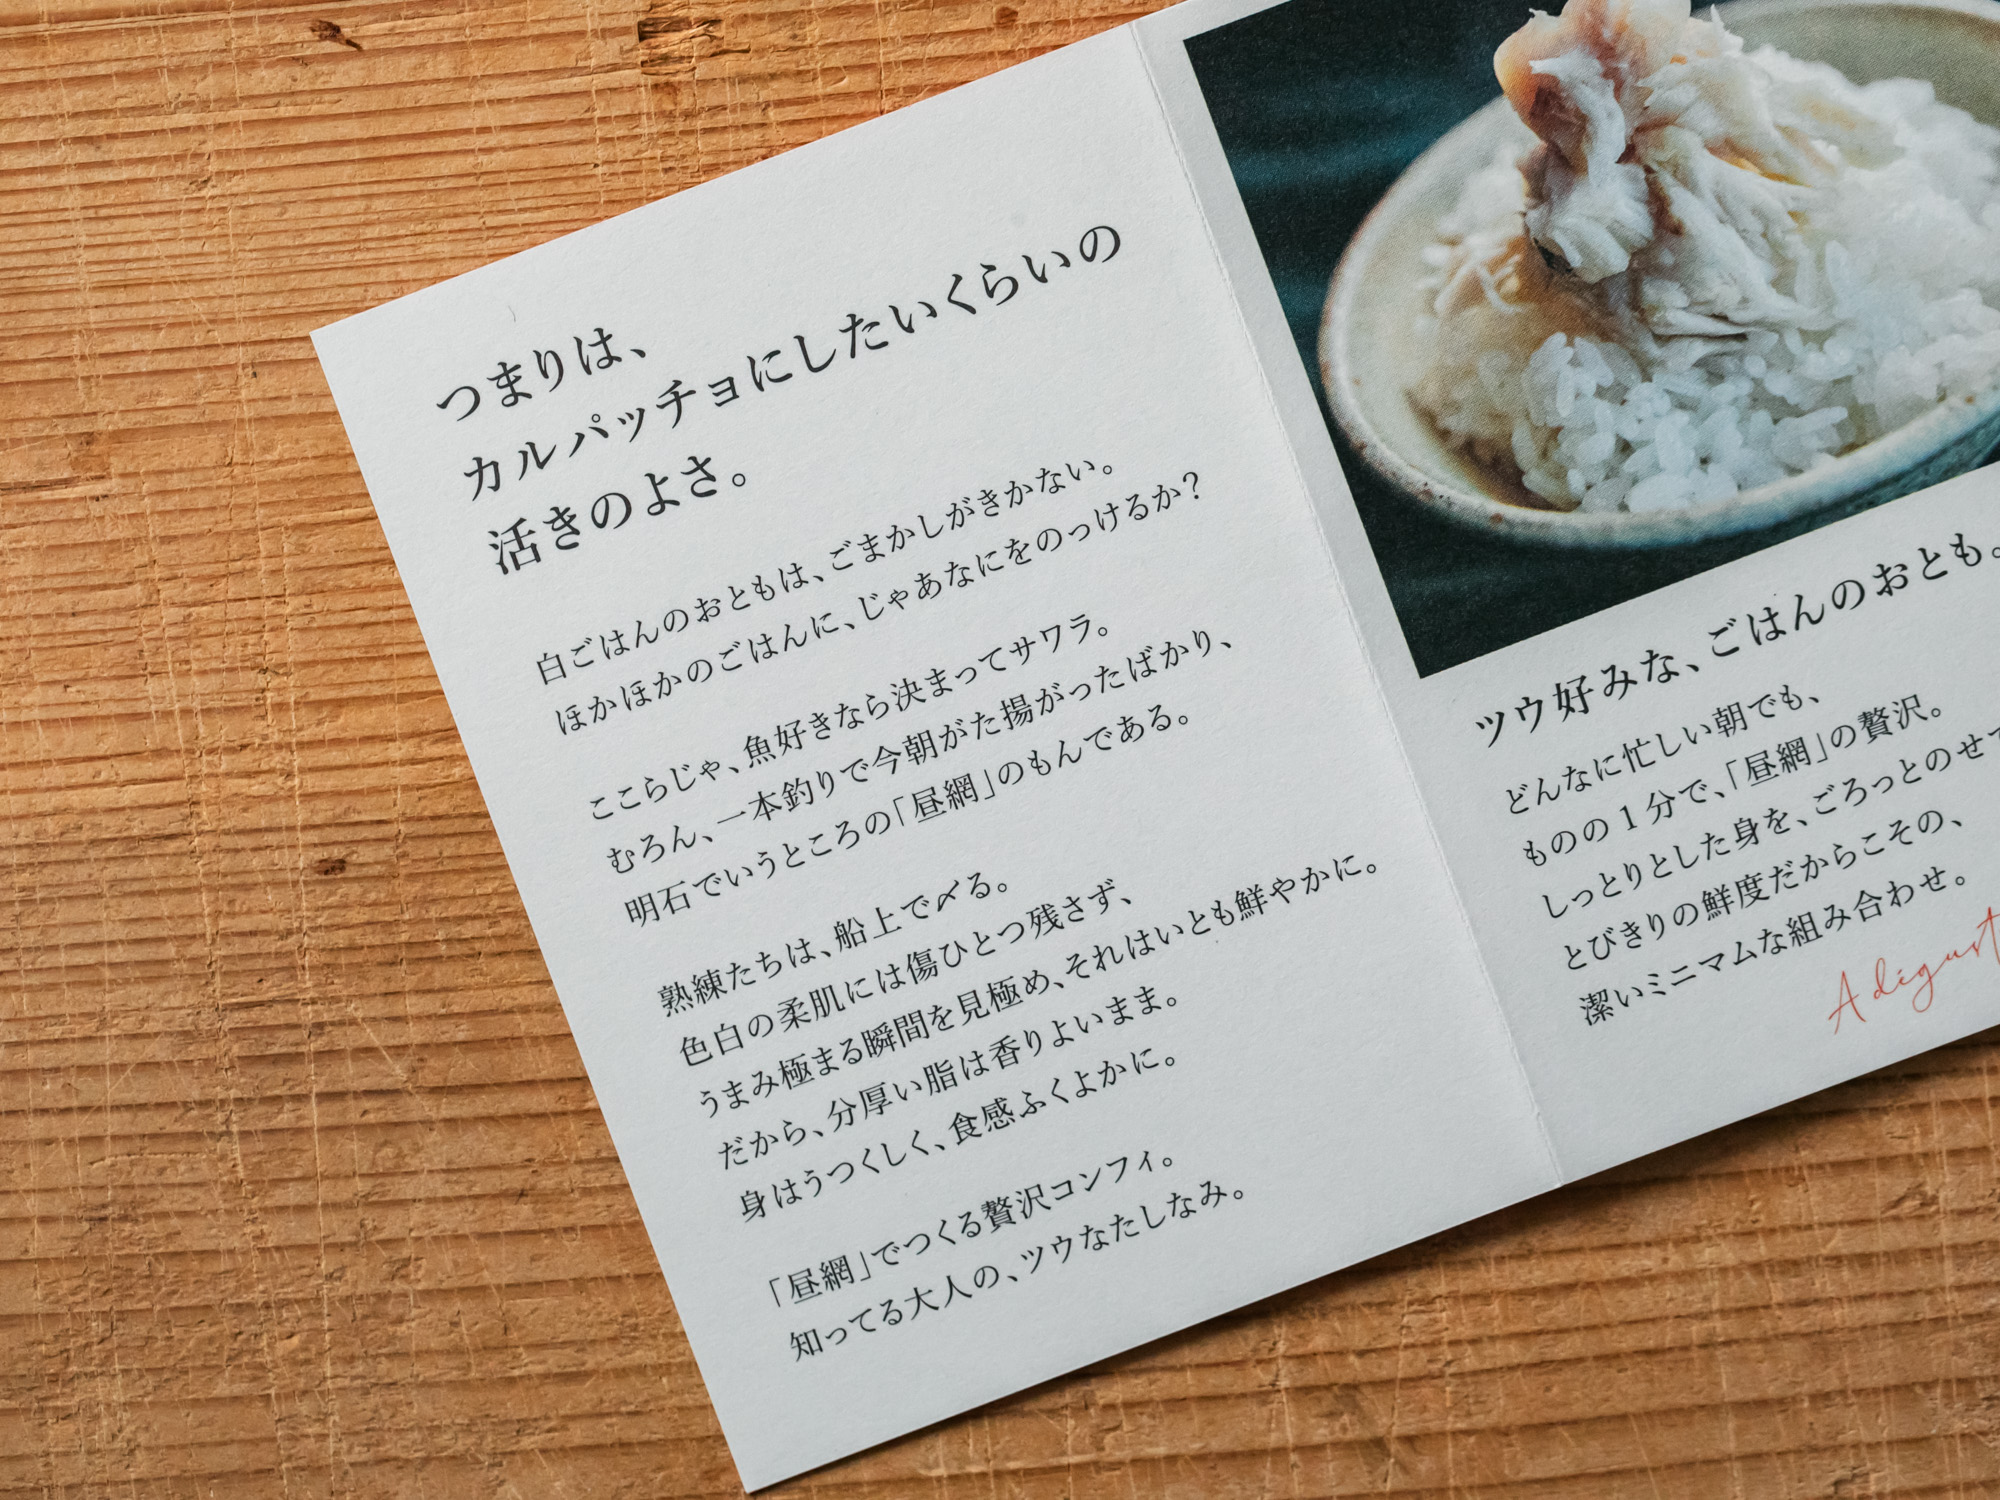 つまりは、
カルパッチョにしたいくらいの
活きのよさ。
白ごはんのおともは、ごまかしがきかない。
ほかほかのごはんに、じゃあなにをのっけるか?
ここらじゃ、魚好きなら決まってサワラ。
むろん、一本釣りで今朝がた揚がったばかり、
明石でいうところの「昼網」のもんである。
熟練たちは、船上で〆る。
色白の柔肌には傷ひとつ残さず、
うまみ極まる瞬間を見極め、それはいとも鮮やかに。
だから、分厚い脂は香りよいまま。
身はうつくしく、食感ふくよかに。
「昼網」でつくる贅沢コンフィ。
知ってる大人の、ツウなたしなみ。
ツウ好みな、ごはんのおとも。
どんなに忙しい朝でも、
ものの1分で、「昼網」の贅沢。
しっとりとした身を、ごろっとのせて
とびきりの鮮度だからこその、
潔いミニマムな組み合わせ。
A dégust